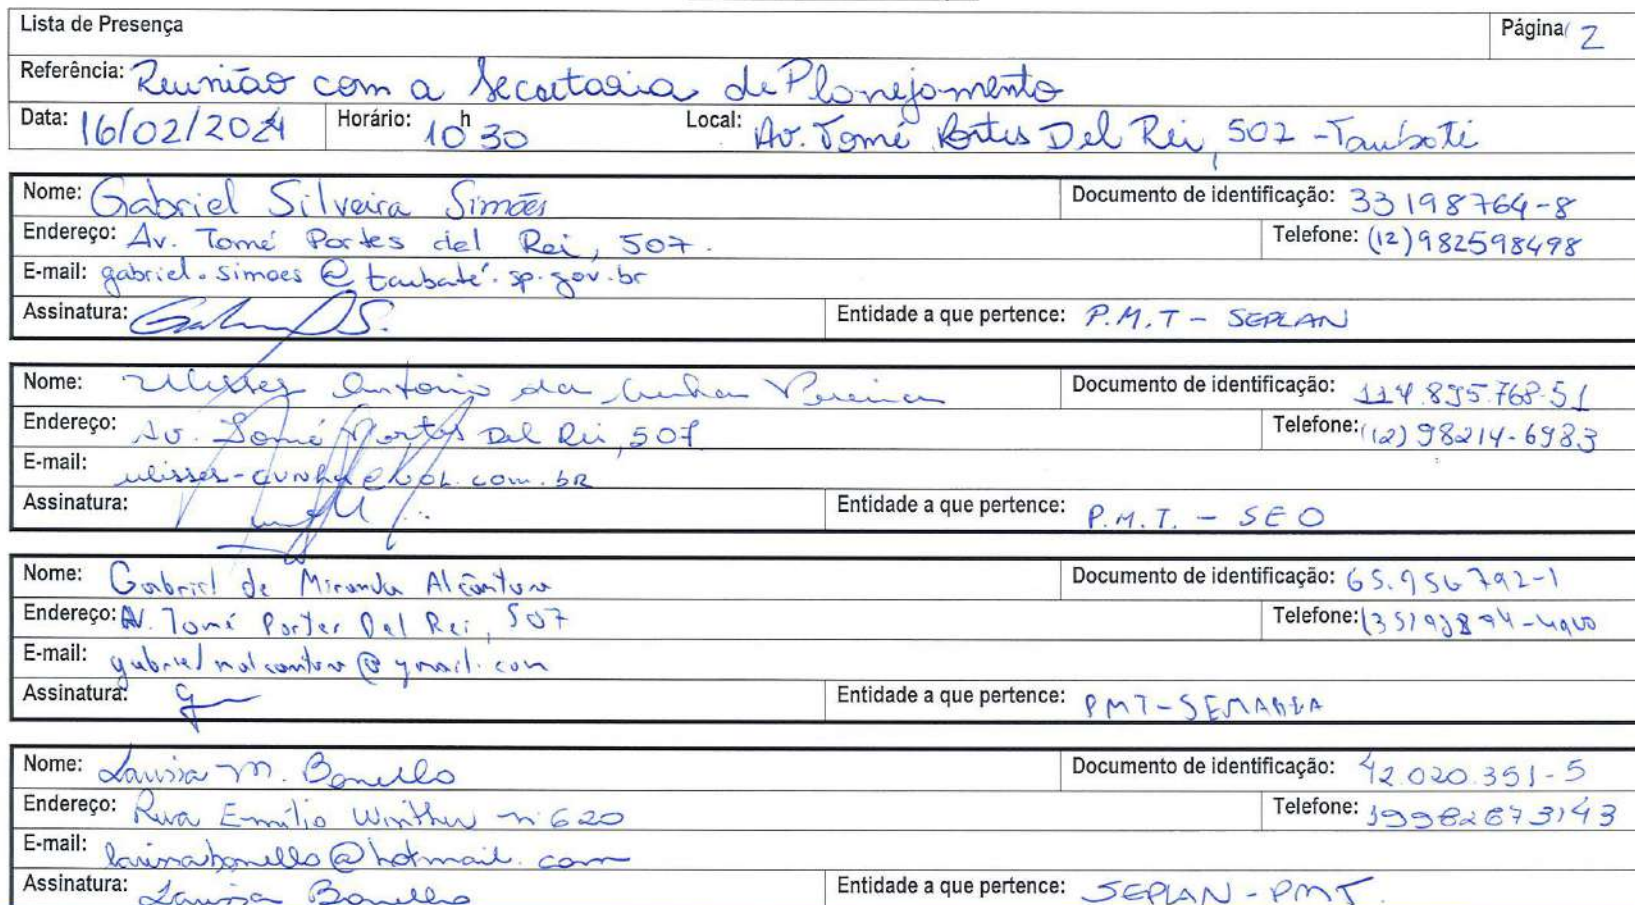 Lista de Presença Página 2
Referência: Reunião com a Secretaria de Planejamento
Data: 16/02/2024 Horário: 10h30 Local: Av. Tomé Portes Del Rei, 507 - Taubaté
Nome: Gabriel Silveira Simões Documento de identificação: 33198764-8
Endereço: Av. Tomé Portes del Rei, 507. Telefone: (12)982598498
E-mail: gabriel.simoes@taubaté.sp.gov.br
Assinatura: Entidade a que pertence: P.M.T - SEPLAN
Nome: Ulisses Antonio da Cunha Pereira Documento de identificação: 114.895.768-51
Endereço: Av. Tomé Portes Del Rei, 507 Telefone: (12) 98214-6983
E-mail: ulisses-cunha@bol.com.br
Assinatura: Entidade a que pertence: P.M.T. - SEO
Nome: Gabriel de Miranda Alcântara Documento de identificação: 65.956792-1
Endereço: Av. Tomé Portes Del Rei, 507 Telefone:
E-mail: gabrielmalcantara@gmail.com
Assinatura: Entidade a que pertence: PMT-
Nome: Larissa M. Bonello Documento de identificação: 42.020.351-5
Endereço: Rua Emílio Winther n. 620 Telefone: 19982873143
E-mail: larissabonello@hotmail.com
Assinatura: Larissa Bonello Entidade a que pertence: SEPLAN-PMT.